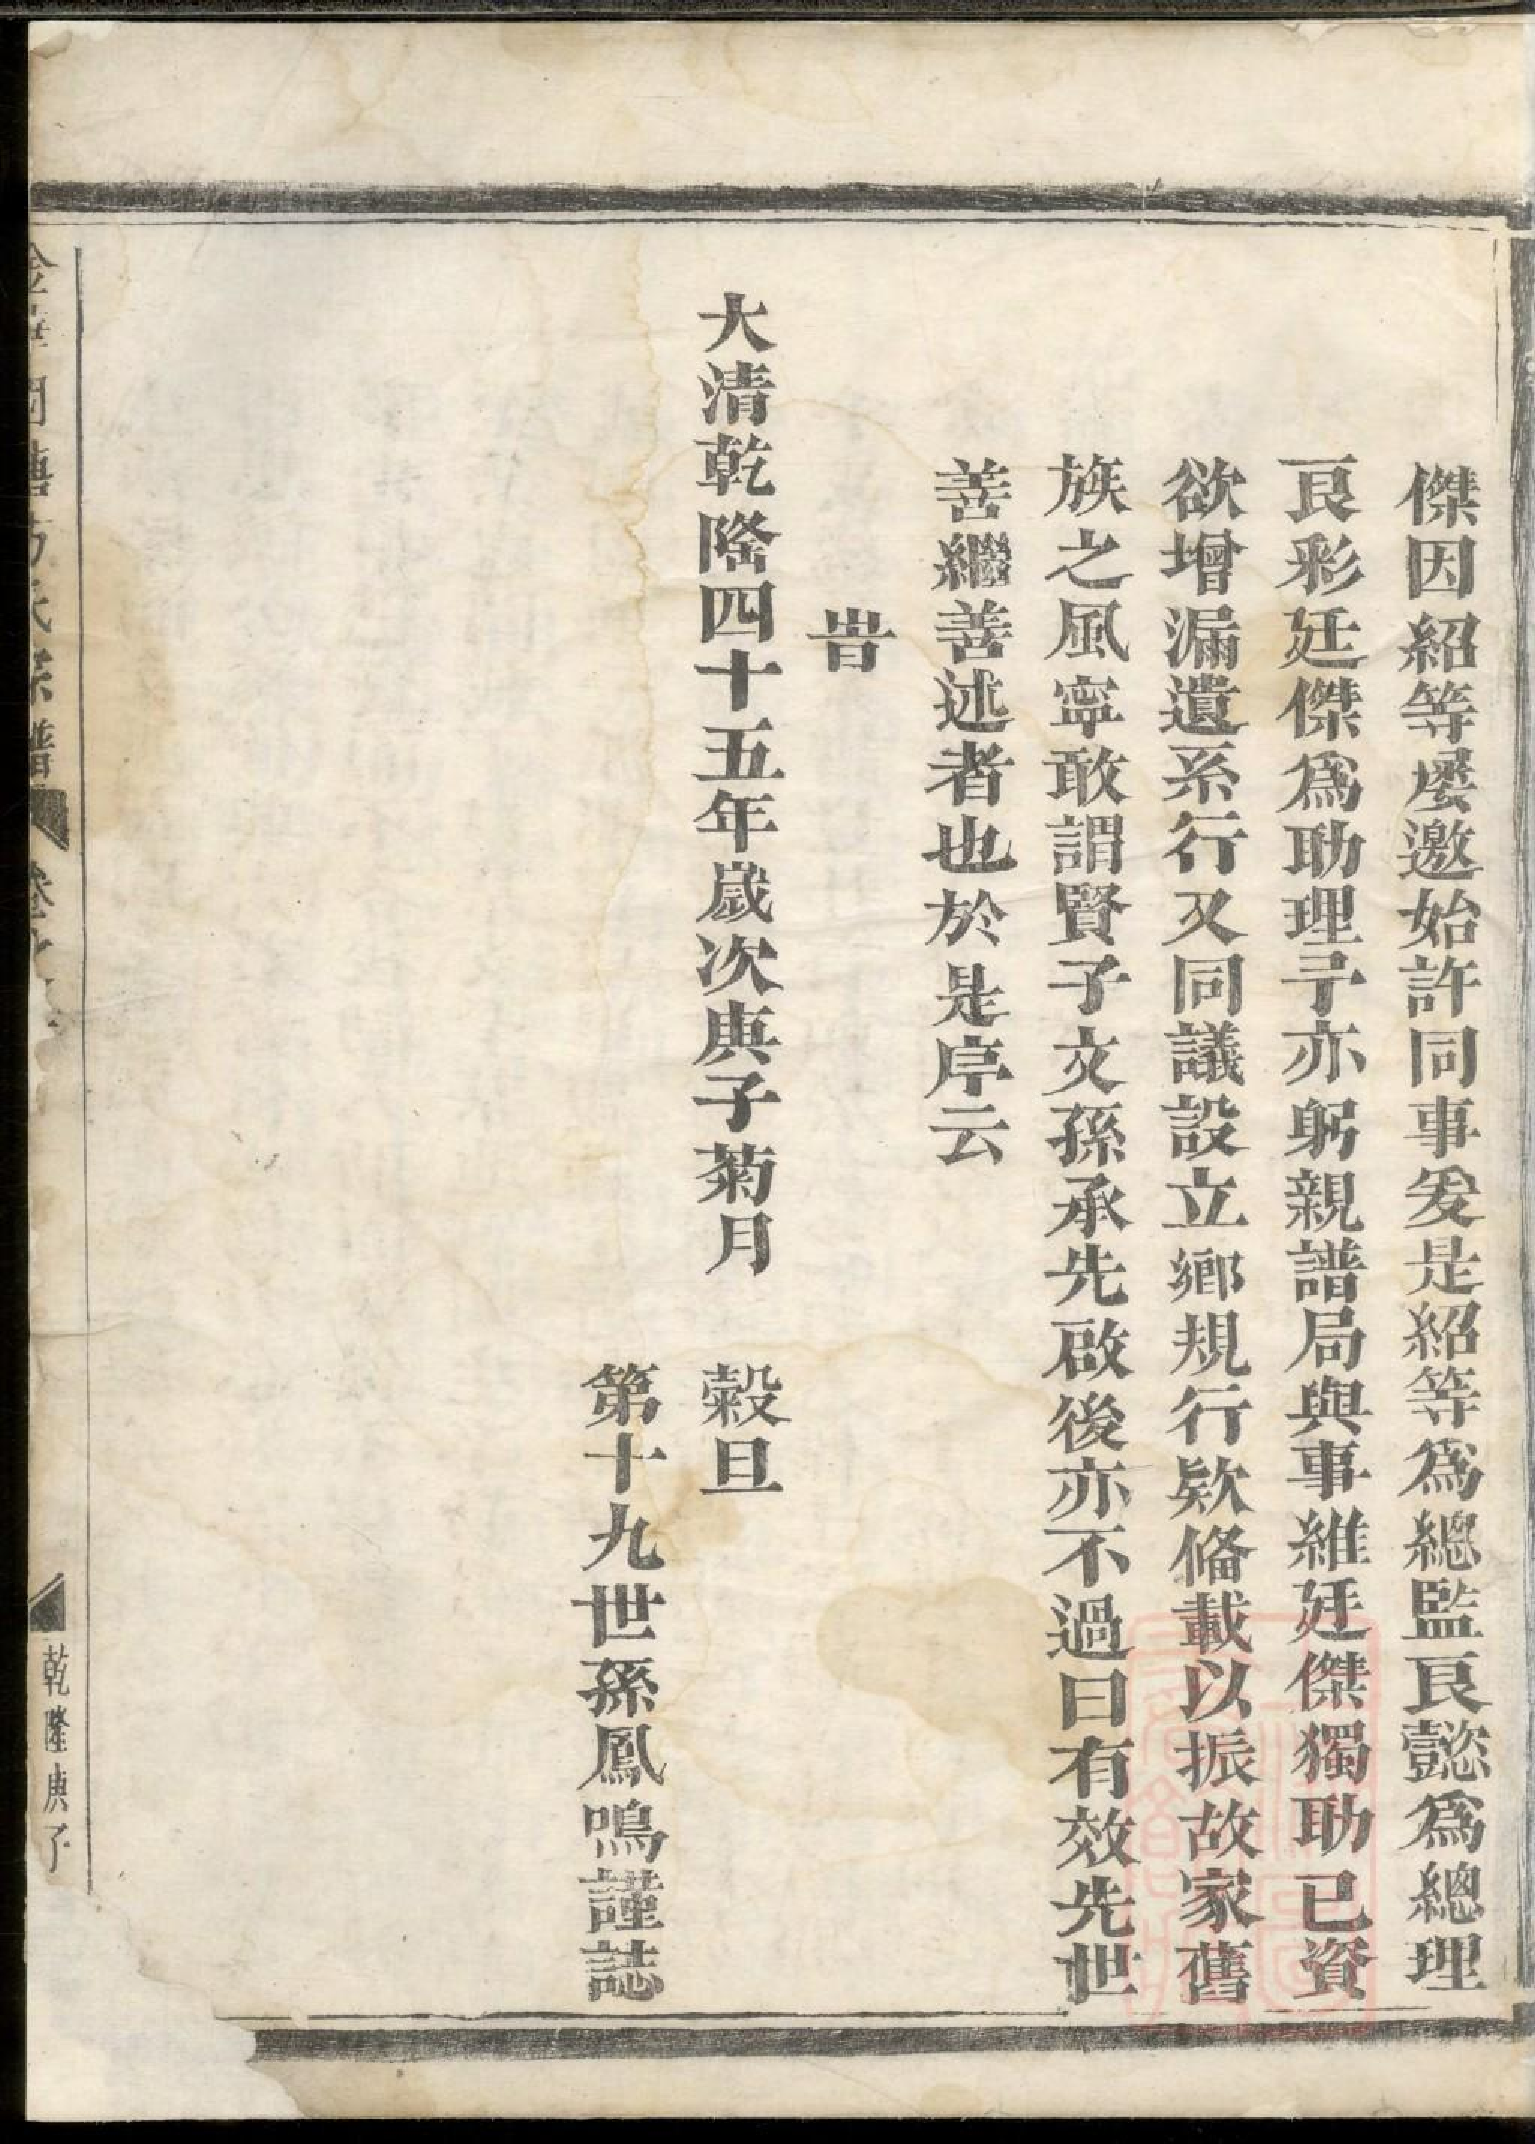 傑因紹等屡邀始許同事爰是紹等爲總監良懿爲總理
良彩廷傑爲助理予亦躬親譜局與事維廷傑獨助已資
欲增漏遺系行又同議設立鄉規行欵俻載以振故家舊
族之風寧敢謂賢子文孫承先啟後亦不過曰有效先世
善繼善述者也於是序云
旹
大清乾隆四十五年歲次庚子菊月 穀旦
第十九世孫鳳鳴謹誌
氏宗譜 卷之
乾隆庚子